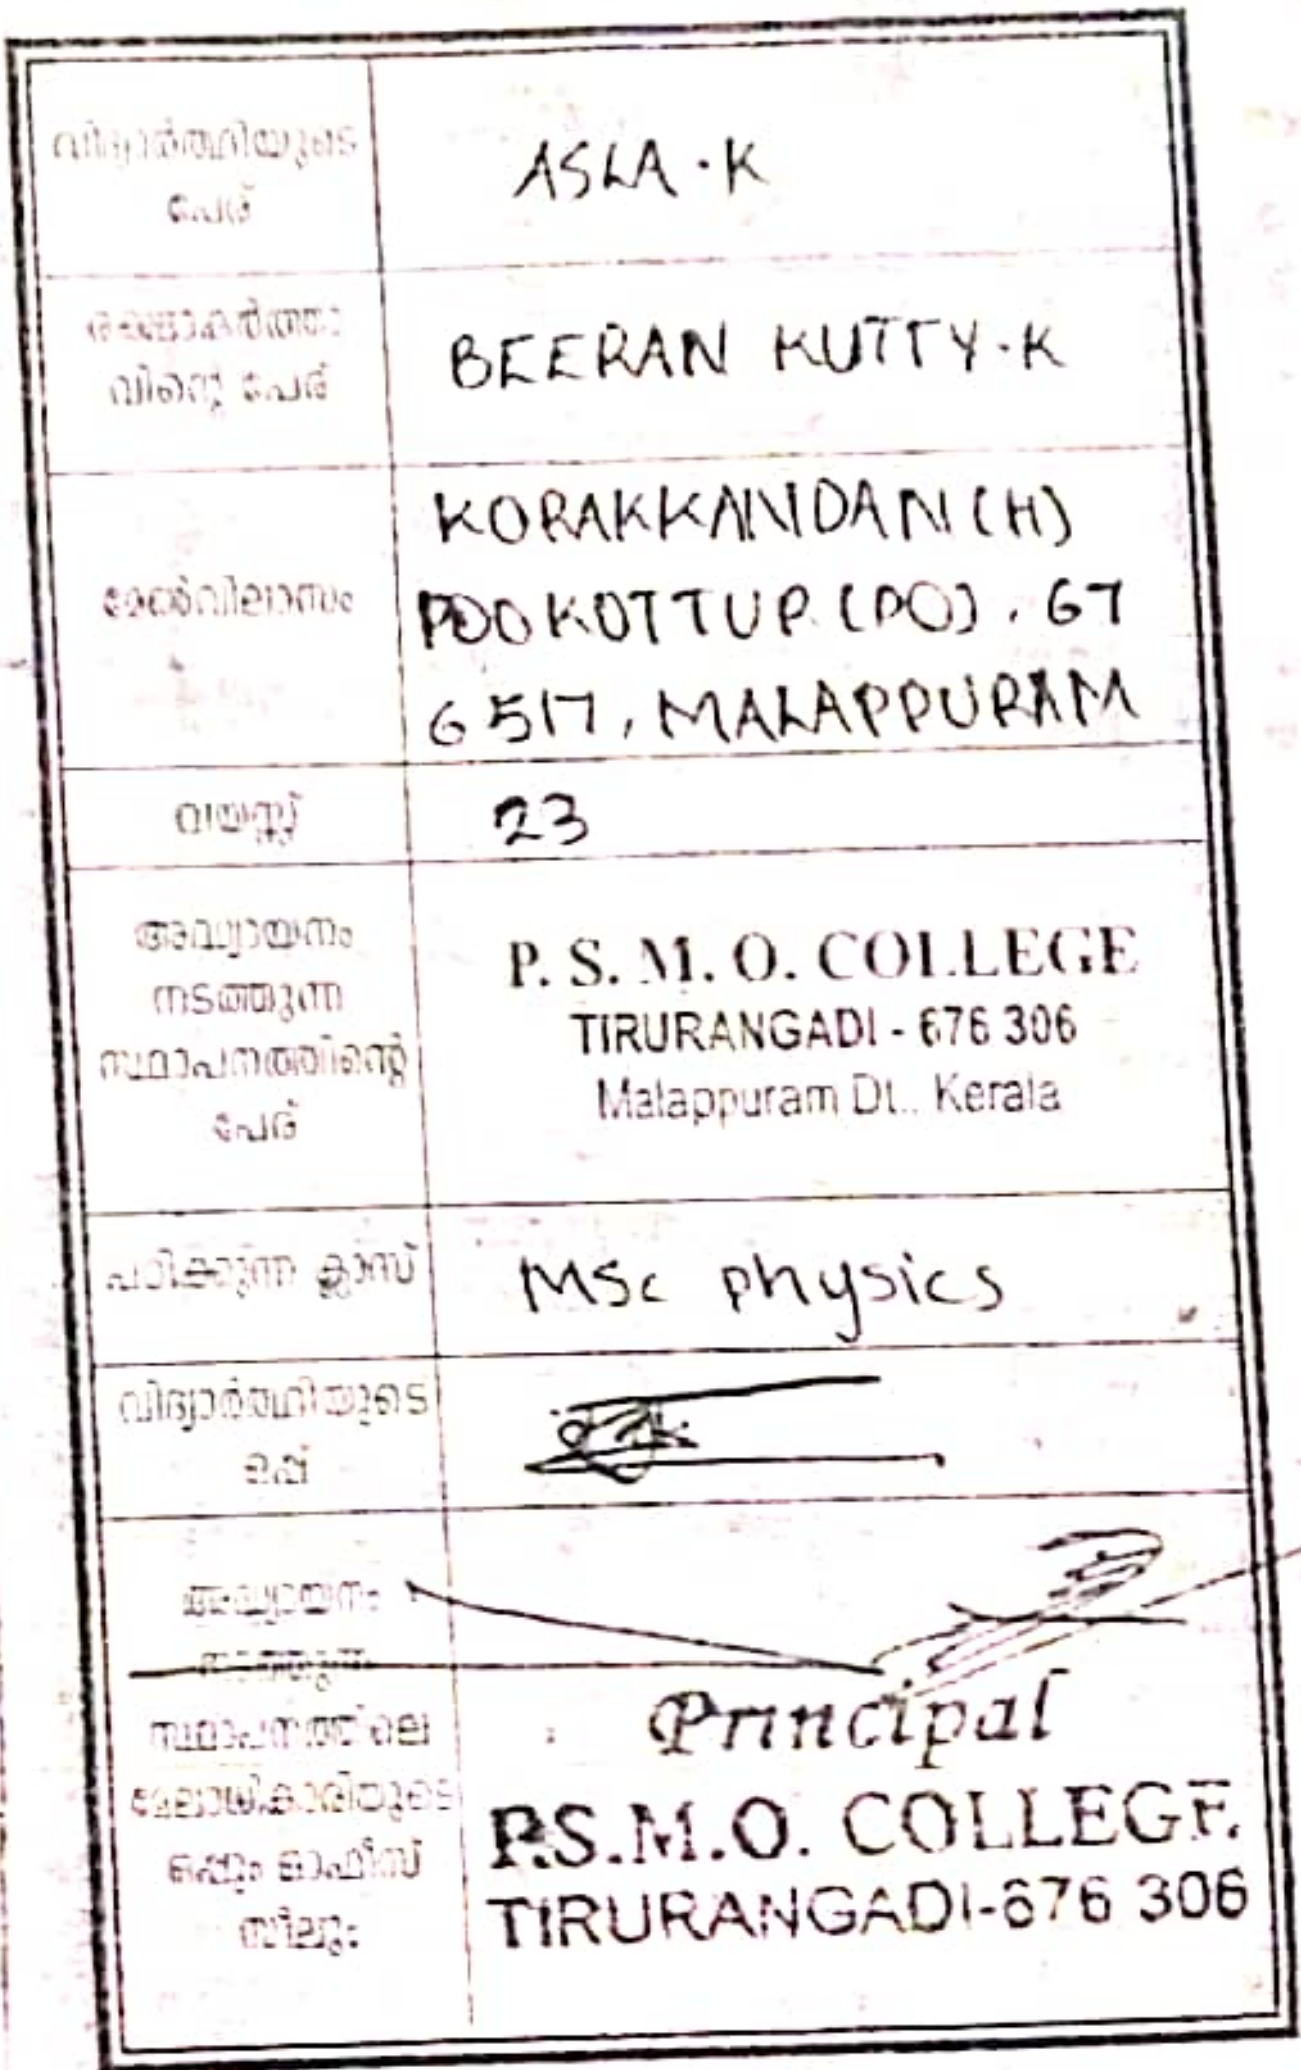 വിദ്യാർത്ഥിയുടെ
പേര്
ASLA·K
രക്ഷാകർത്താ
വിന്റെ പേര്
BEERAN KUTTY·K
മേൽവിലാസം
KORAKKANDAN (H)
POOKOTTUR (PO), 67
6517, MALAPPURAM
വയസ്സ്
23
അദ്ധ്യയനം
നടത്തുന്ന
സ്ഥാപനത്തിന്റെ
പേര്
P. S. M. O. COLLEGE
TIRURANGADI - 676 306
Malappuram Dt.. Kerala
പഠിക്കുന്ന ക്ലാസ്
MSc physics
വിദ്യാർത്ഥിയുടെ
ഒപ്പ്
അദ്ധ്യയനം
നടത്തുന്ന
സ്ഥാപനത്തിലെ
മേലധികാരിയുടെ
ഒപ്പും ഓഫീസ്
സീലും
Principal
P.S.M.O. COLLEGE.
TIRURANGADI-676 306